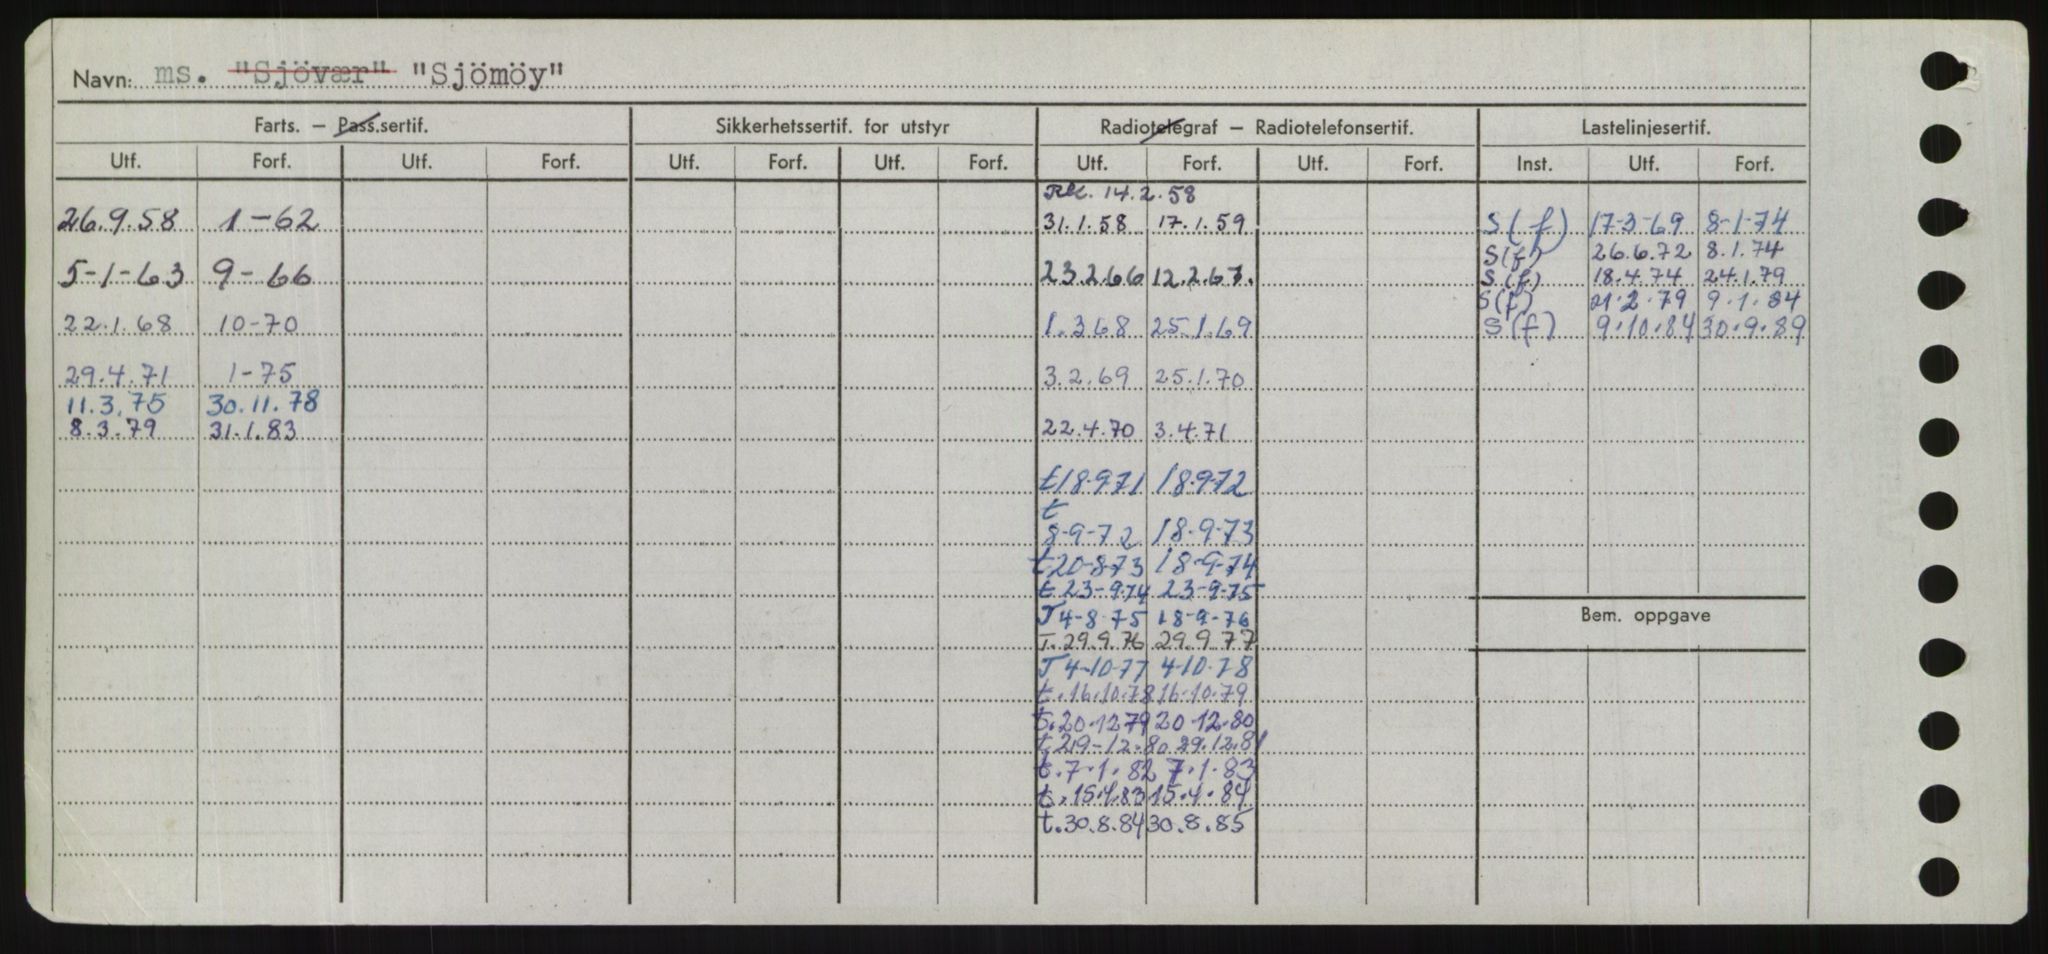 Navn: ms. "Sjövær" "Sjömöy"
Farts. — Pass.sertif. Sikkerhetssertif. for utstyr Radiotelegraf — Radiotelefonsertif. Lastelinjesertif.
Utf. Forf. Utf. Forf. Utf. Forf. Utf. Forf. Utf. Forf. Utf. Forf. Inst. Utf. Forf.
14.2.58
26.9.58 1-62 31.1.58 17.1.59 S(f) 17-3-69 8-1-74
S(f) 26.6.72 8.1.74
5-1-63 9-66 23.2.66 12.2.67. S(f) 18.4.74 24.1.79
S(f) 21.2.79 9.1.84
22.1.68 10-70 1.3.68 25.1.69 S(f) 9.10.84 30.9.89
29.4.71 1-75 3.2.69 25.1.70
11.3.75 30.11.78
8.3.79 31.1.83 22.4.70 3.4.71
t18-971 18-972
t
8-9-72 18-9-73
t20-873 18-9-74
t23-9-74 23-9-75
Bem. oppgave
T4-8-75 18-9-76
T.29.9.76 29.9.77
T4-10-77 4-10-78
t.16.10.78 16.10.79
t.20.1279 20.12.80
t29-12.80 29.12.81
t.7.1.82 7.1.83
t.15.4.83 15.4.84
t.30.8.84 30.8.85